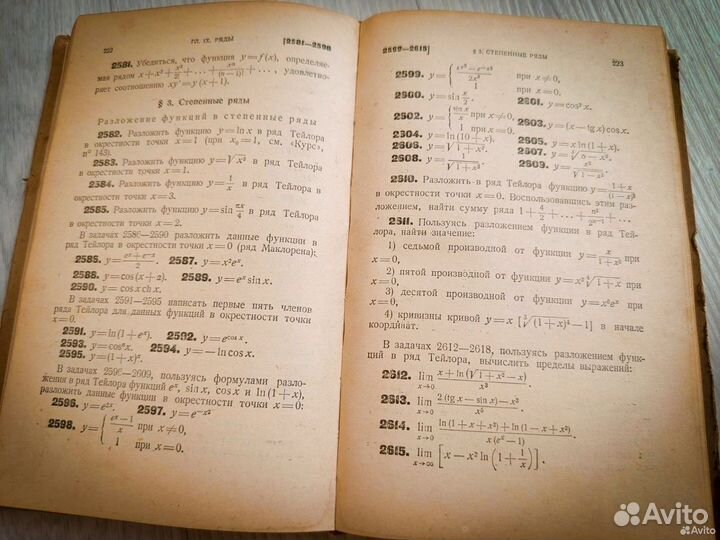 222 ГЛ. IX. РЯДЫ [2581—2590
2581. Убедиться, что функция y=f(x), определяе-
мая рядом x+x²+x³/2!+...+xⁿ/(n—1)!+..., удовлетво-
ряет соотношению xy'=y(x+1).
§ 3. Степенные ряды
Разложение функций в степенные ряды
2582. Разложить функцию y=ln x в ряд Тейлора
в окрестности точки x=1 (при x₀=1, см. «Курс»,
n° 143).
2583. Разложить функцию y=√x³ в ряд Тейлора
в окрестности точки x=1.
2584. Разложить функцию y=1/x в ряд Тейлора в
окрестности точки x=3.
2585. Разложить функцию y=sin πx/4 в ряд Тейлора в
окрестности точки x=2.
В задачах 2586—2590 разложить данные функции в
ряд Тейлора в окрестности точки x=0 (ряд Маклорена):
2586. y=(eˣ+e⁻ˣ)/2. 2587. y=x²eˣ.
2588. y=cos(x+α). 2589. y=eˣ sin x.
2590. y=cos x ch x.
В задачах 2591—2595 написать первые пять членов
ряда Тейлора для данных функций в окрестности точки
x=0:
2591. y=ln(1+eˣ). 2592. y=e^cos x.
2593. y=cosⁿx. 2594. y=—ln cos x.
2595. y=(1+x)ˣ.
В задачах 2596—2609, пользуясь формулами разло-
жения в ряд Тейлора функций eˣ, sin x, cos x и ln(1+x),
разложить данные функции в окрестности точки x=0:
2596. y=e²ˣ. 2597. y=e^—x².
2598. y={(eˣ—1)/x при x≠0,
1 при x=0.
2599—2615] § 3. СТЕПЕННЫЕ РЯДЫ 223
2599. y={ при x≠0,
при x=0.
2600. y=sin x/2. 2601. y=cos²x.
2602. y={sin x/x при x≠0, 2603. y=(x—tg x)cos x.
1 при x=0.
2604. y=ln(10+x). 2605. y=x ln(1+x).
2606. y=√1+x². 2607. y=∛8—x².
2608. y=1/√1+x³. 2609. y=
2610. Разложить в ряд Тейлора функцию y=(1+x)/(1—x)³
в окрестности точки x=0. Воспользовавшись этим раз-
ложением, найти сумму ряда 1+4/2+...+n²/2ⁿ⁻¹+...
2611. Пользуясь разложением функции в ряд Тей-
лора, найти значение:
1) седьмой производной от функции y=x/(1+x²) при
x=0,
2) пятой производной от функции y=x²⁴√1+x при
x=0,
3) десятой производной от функции y=x⁶eˣ при
x=0,
4) кривизны кривой y=x[∛(1+x)⁴—1] в начале
координат.
В задачах 2612—2618, пользуясь разложением функ-
ций в ряд Тейлора, вычислить пределы выражений:
2612. lim x→0 (x+ln(√1+x²—x))/x³.
2613. lim x→0 (2(tg x—sin x)—x³)/x⁵.
2614. lim x→0 (ln(1+x+x²)+ln(1—x+x²))/(x(eˣ—1)).
2615. lim x→∞ [x—x² ln(1+1/x)].
Avito
Avito